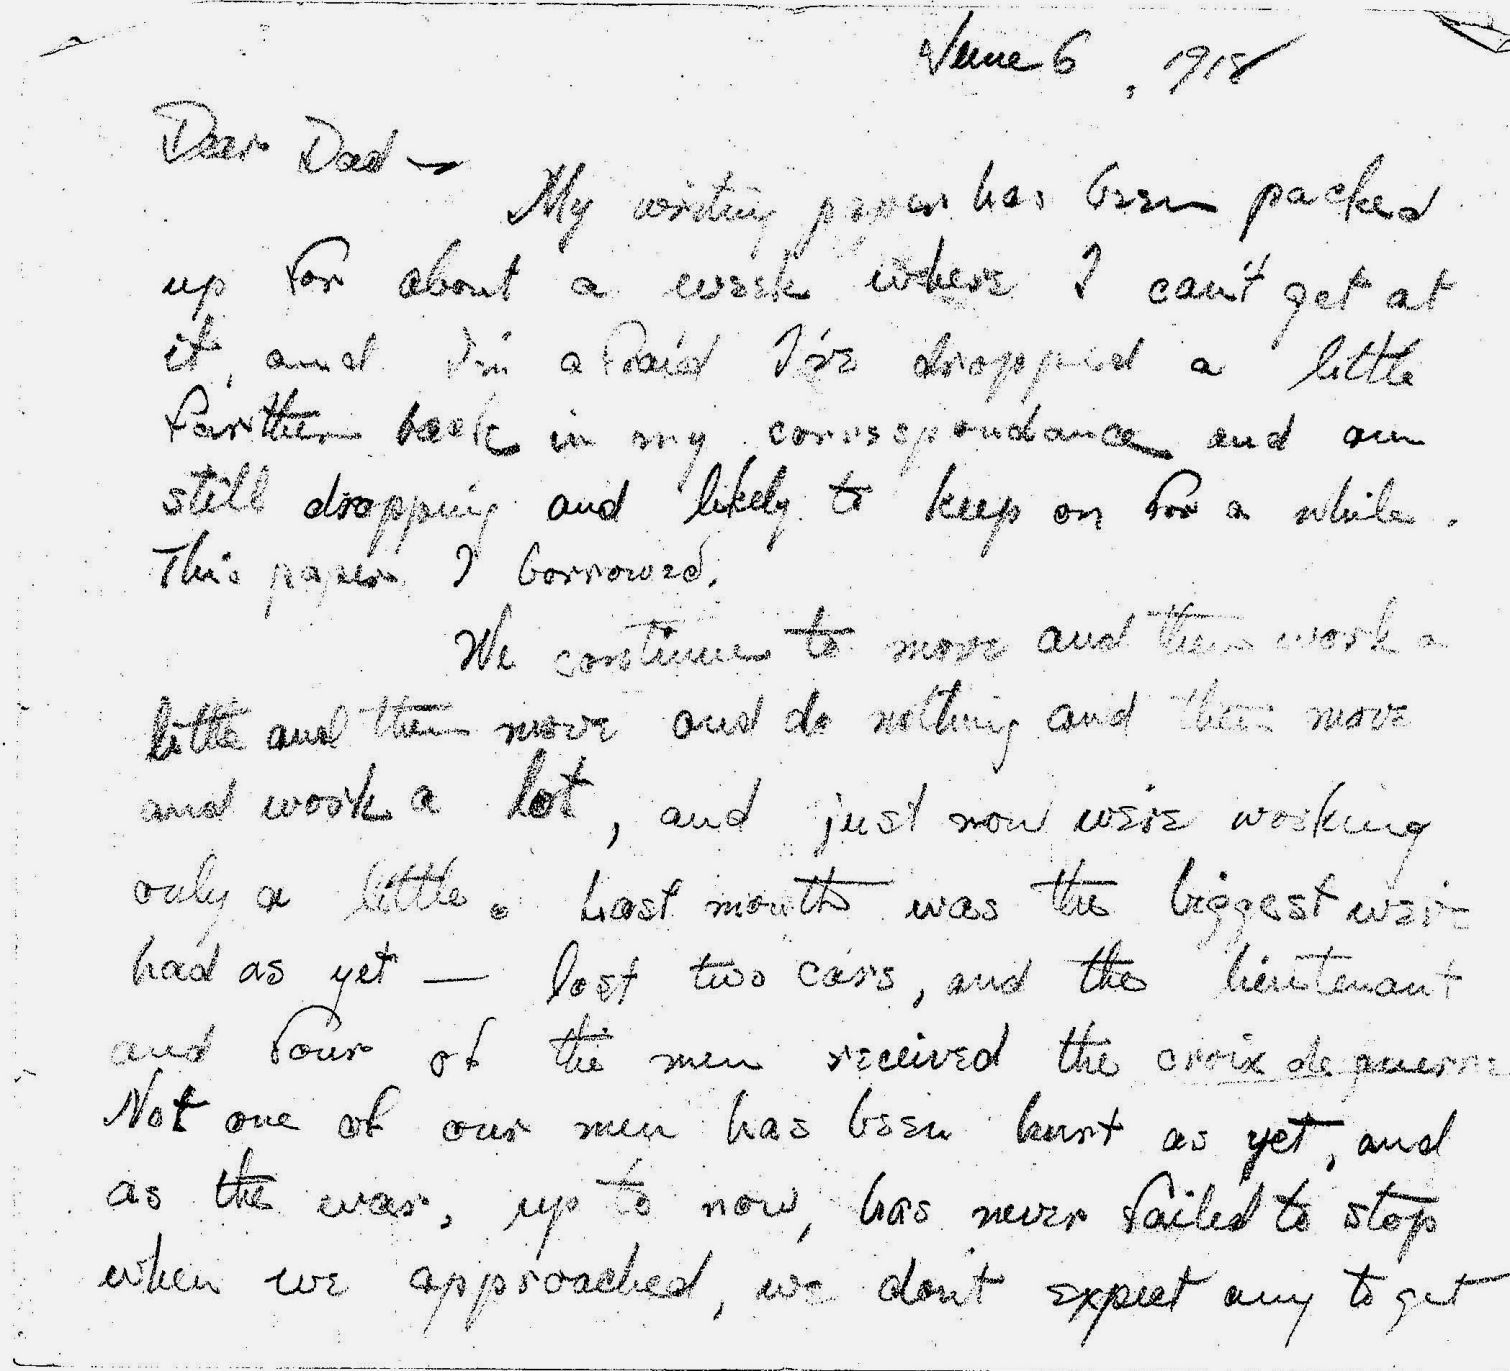 June 6, 1918
Dear Dad —
My writing paper has been packed
up for about a week where I can't get at
it, and I'm afraid I've dropped a little
farther back in my correspondance and am
still dropping and likely to keep on for a while.
This paper I borrowed.
We continue to move and then work a
little and then move and do nothing and then move
and work a lot, and just now we're working
only a little. Last month was the biggest we've
had as yet — lost two cars, and the lieutenant
and four of the men received the croix de guerre
Not one of our men has been hurt as yet, and
as the war, up to now, has never failed to stop
when we approached, we don't expect any to get